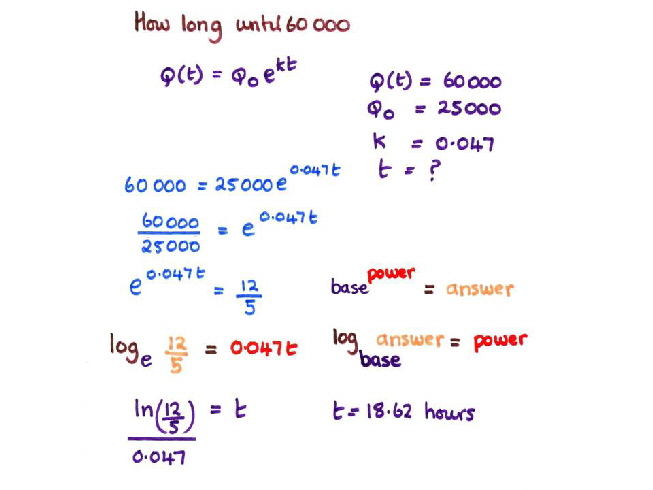 How long until 60 000
Q(t) = Q₀e^kt
Q(t) = 60 000
Q₀ = 25000
k = 0.047
t = ?
60 000 = 25000e^0.047t
60 000/25000 = e^0.047t
e^0.047t = 12/5
base^power = answer
logₑ 12/5 = 0.047t
log_base answer = power
ln(12/5)/0.047 = t
t = 18.62 hours